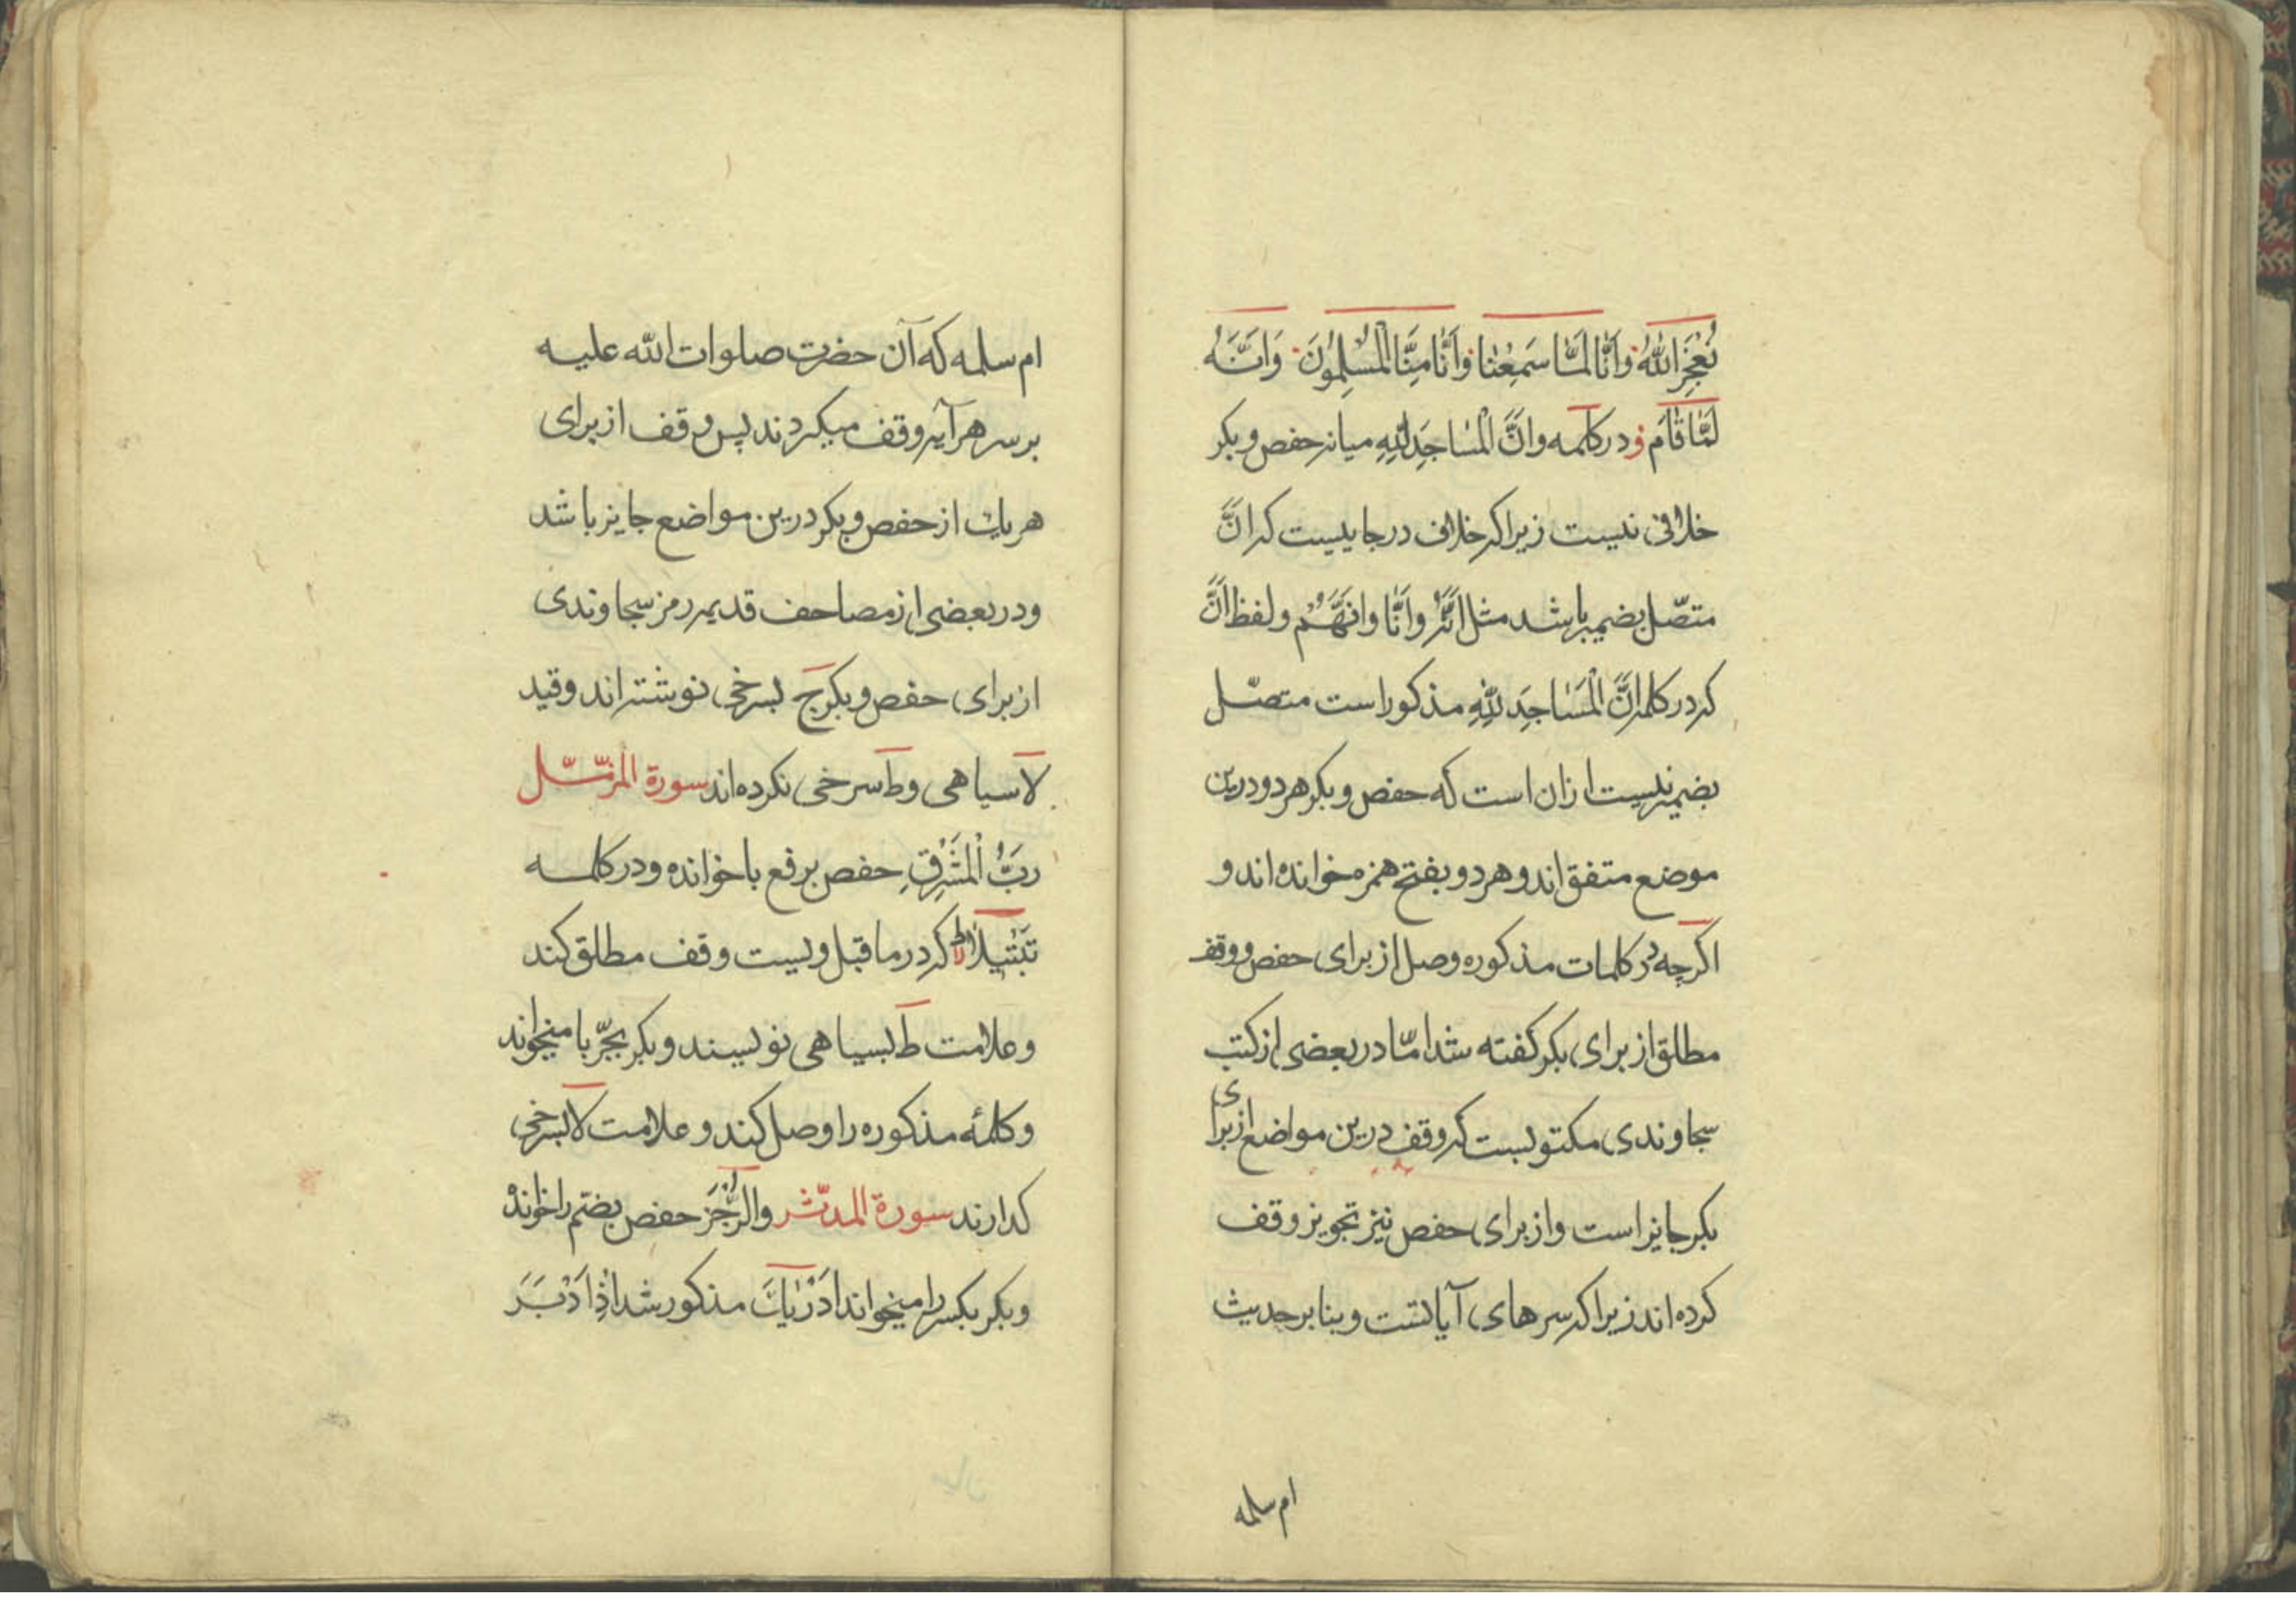 نُعْجِزَ اللّٰهَ وَاَنَّا لَمَّا سَمِعْنَا وَاَنَّا مِنَّا الْمُسْلِمُونَ وَاَنَّهُ
لَمَّا قَامَ و در کلمه وانَّ الْمَسَاجِدَ لِلّٰهِ میانه حفص و بکر
خلافی نیست زیرا که خلاف در جاییست که انَّ
متصّل بضمیر باشد مثل اَنَّهُ وَاَنَّا وانهَّمُ ولفظ اَنَّ
که در کلمه انَّ الْمَسَاجِدَ لِلّٰهِ مذکور است متصّل
بضمیر نیست ازان است که حفص و بکر هر دو درین
موضع متفق اند و هر دو بفتح همزه خوانده اند و
اکرچه در کلمات مذکوره وصل از برای حفص و وقف
مطلق از برای بکر کفته شد امّا در بعضی از کتب
سجاوندی مکتوبست که وقف درین مواضع از برای
بکر جایز است و از برای حفص نیز تجویز وقف
کرده اند زیرا که سرهای آیاتست و بنا بر حدیث
ام سلمه
ام سلمه که آن حضرت صلوات اللّه علیه
بر سر هر آیه وقف میکردند پس وقف از برای
هر یك از حفص و بکر درین مواضع جایز باشد
و در بعضی از مصاحف قدیمه رمز سجاوندی
از برای حفص و بکر ج بسرخی نوشته اند و قید
لا سیاهی و ط سرخی نکرده اند سورة المزمّل
ربُّ الْمَشْرِقِ حفص برفع با خوانده و در کلمه
تَبْتیلًا که در ما قبل ویست وقف مطلق کند
و علامت ط بسیاهی نویسند و بکر بجرّ با میخواند
و کلمه مذکوره را وصل کند و علامت لا بسرخی
کذارند سورة المدّثر والرُّجْزَ حفص بضم را خوانده
و بکر بکسر را میخواند اَدْرٰیكَ مذکور شد اِذْ اَدْبَرَ